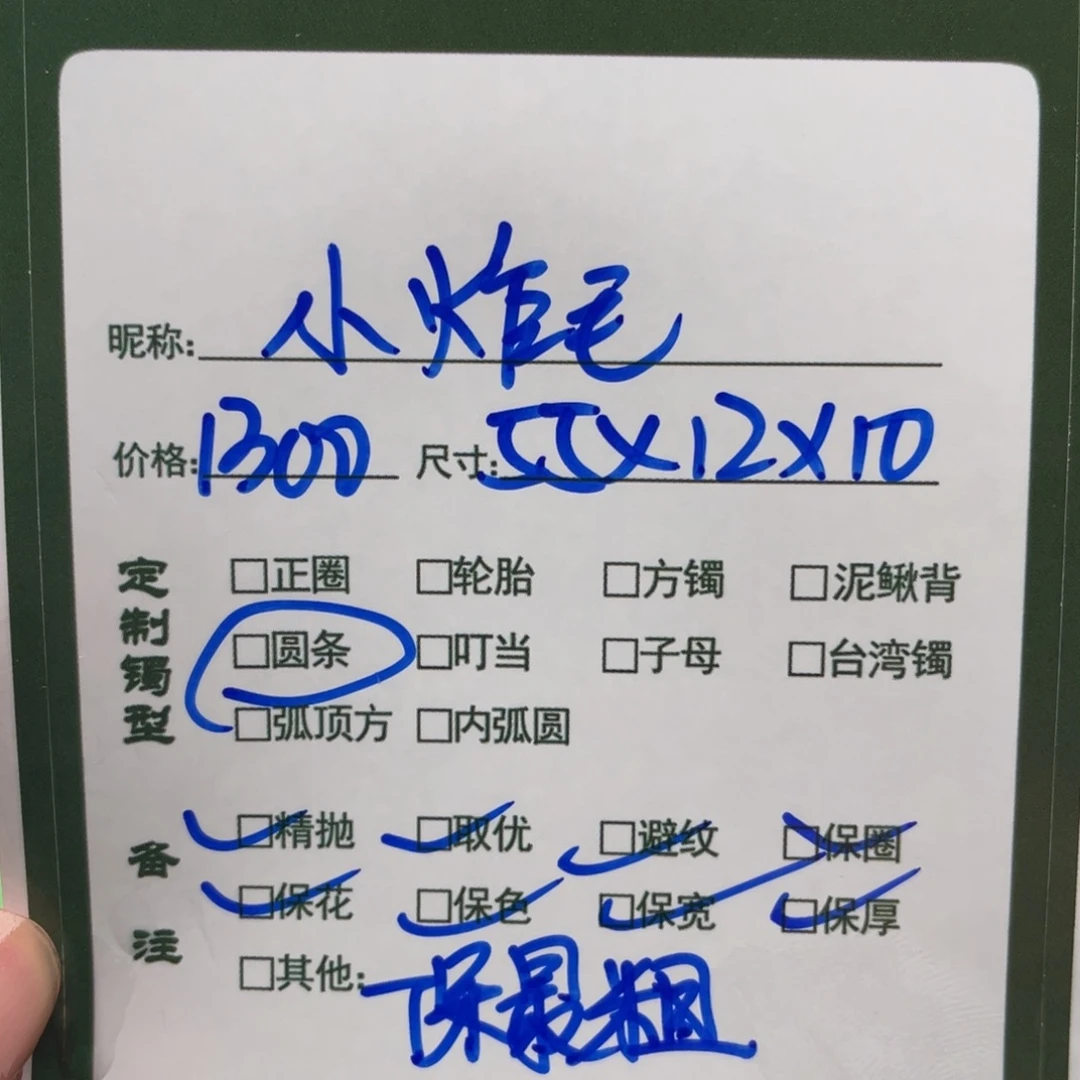 昵称: 小炸毛
价格: 1300 尺寸: 55×12×10
定制镯型
□正圈 □轮胎 □方镯 □泥鳅背
□圆条 □叮当 □子母 □台湾镯
□弧顶方 □内弧圆
备注
□精抛 □取优 □避纹 □保圈
□保花 □保色 □保宽 □保厚
□其他: 保最粗